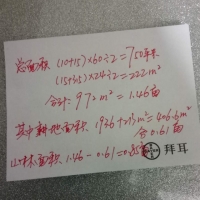 总面积 (10+15)×60÷2=750平米
(15+3.5)×24÷2=222m²
合计: 972m²=1.46亩
其中耕地面积: 193.6+213m²=406.6m²
合 0.61亩
山林面积 1.46-0.61=0.85亩
BAYER 拜耳